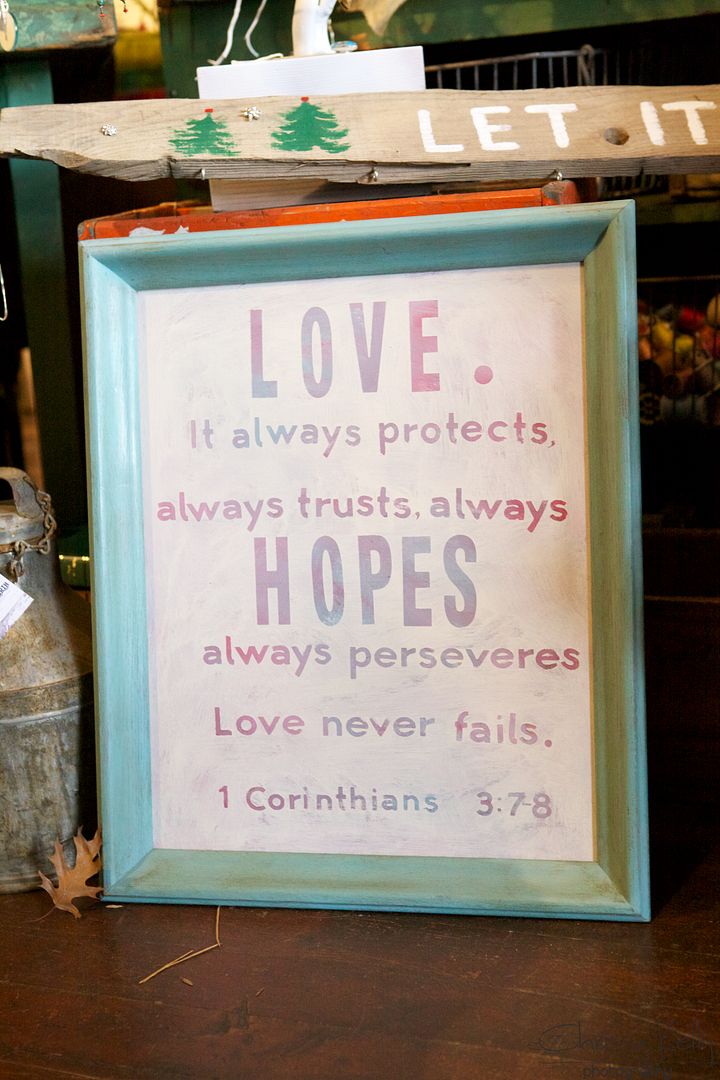 LET IT
LOVE.
It always protects,
always trusts, always
HOPES
always perseveres
Love never fails.
1 Corinthians 3:7-8